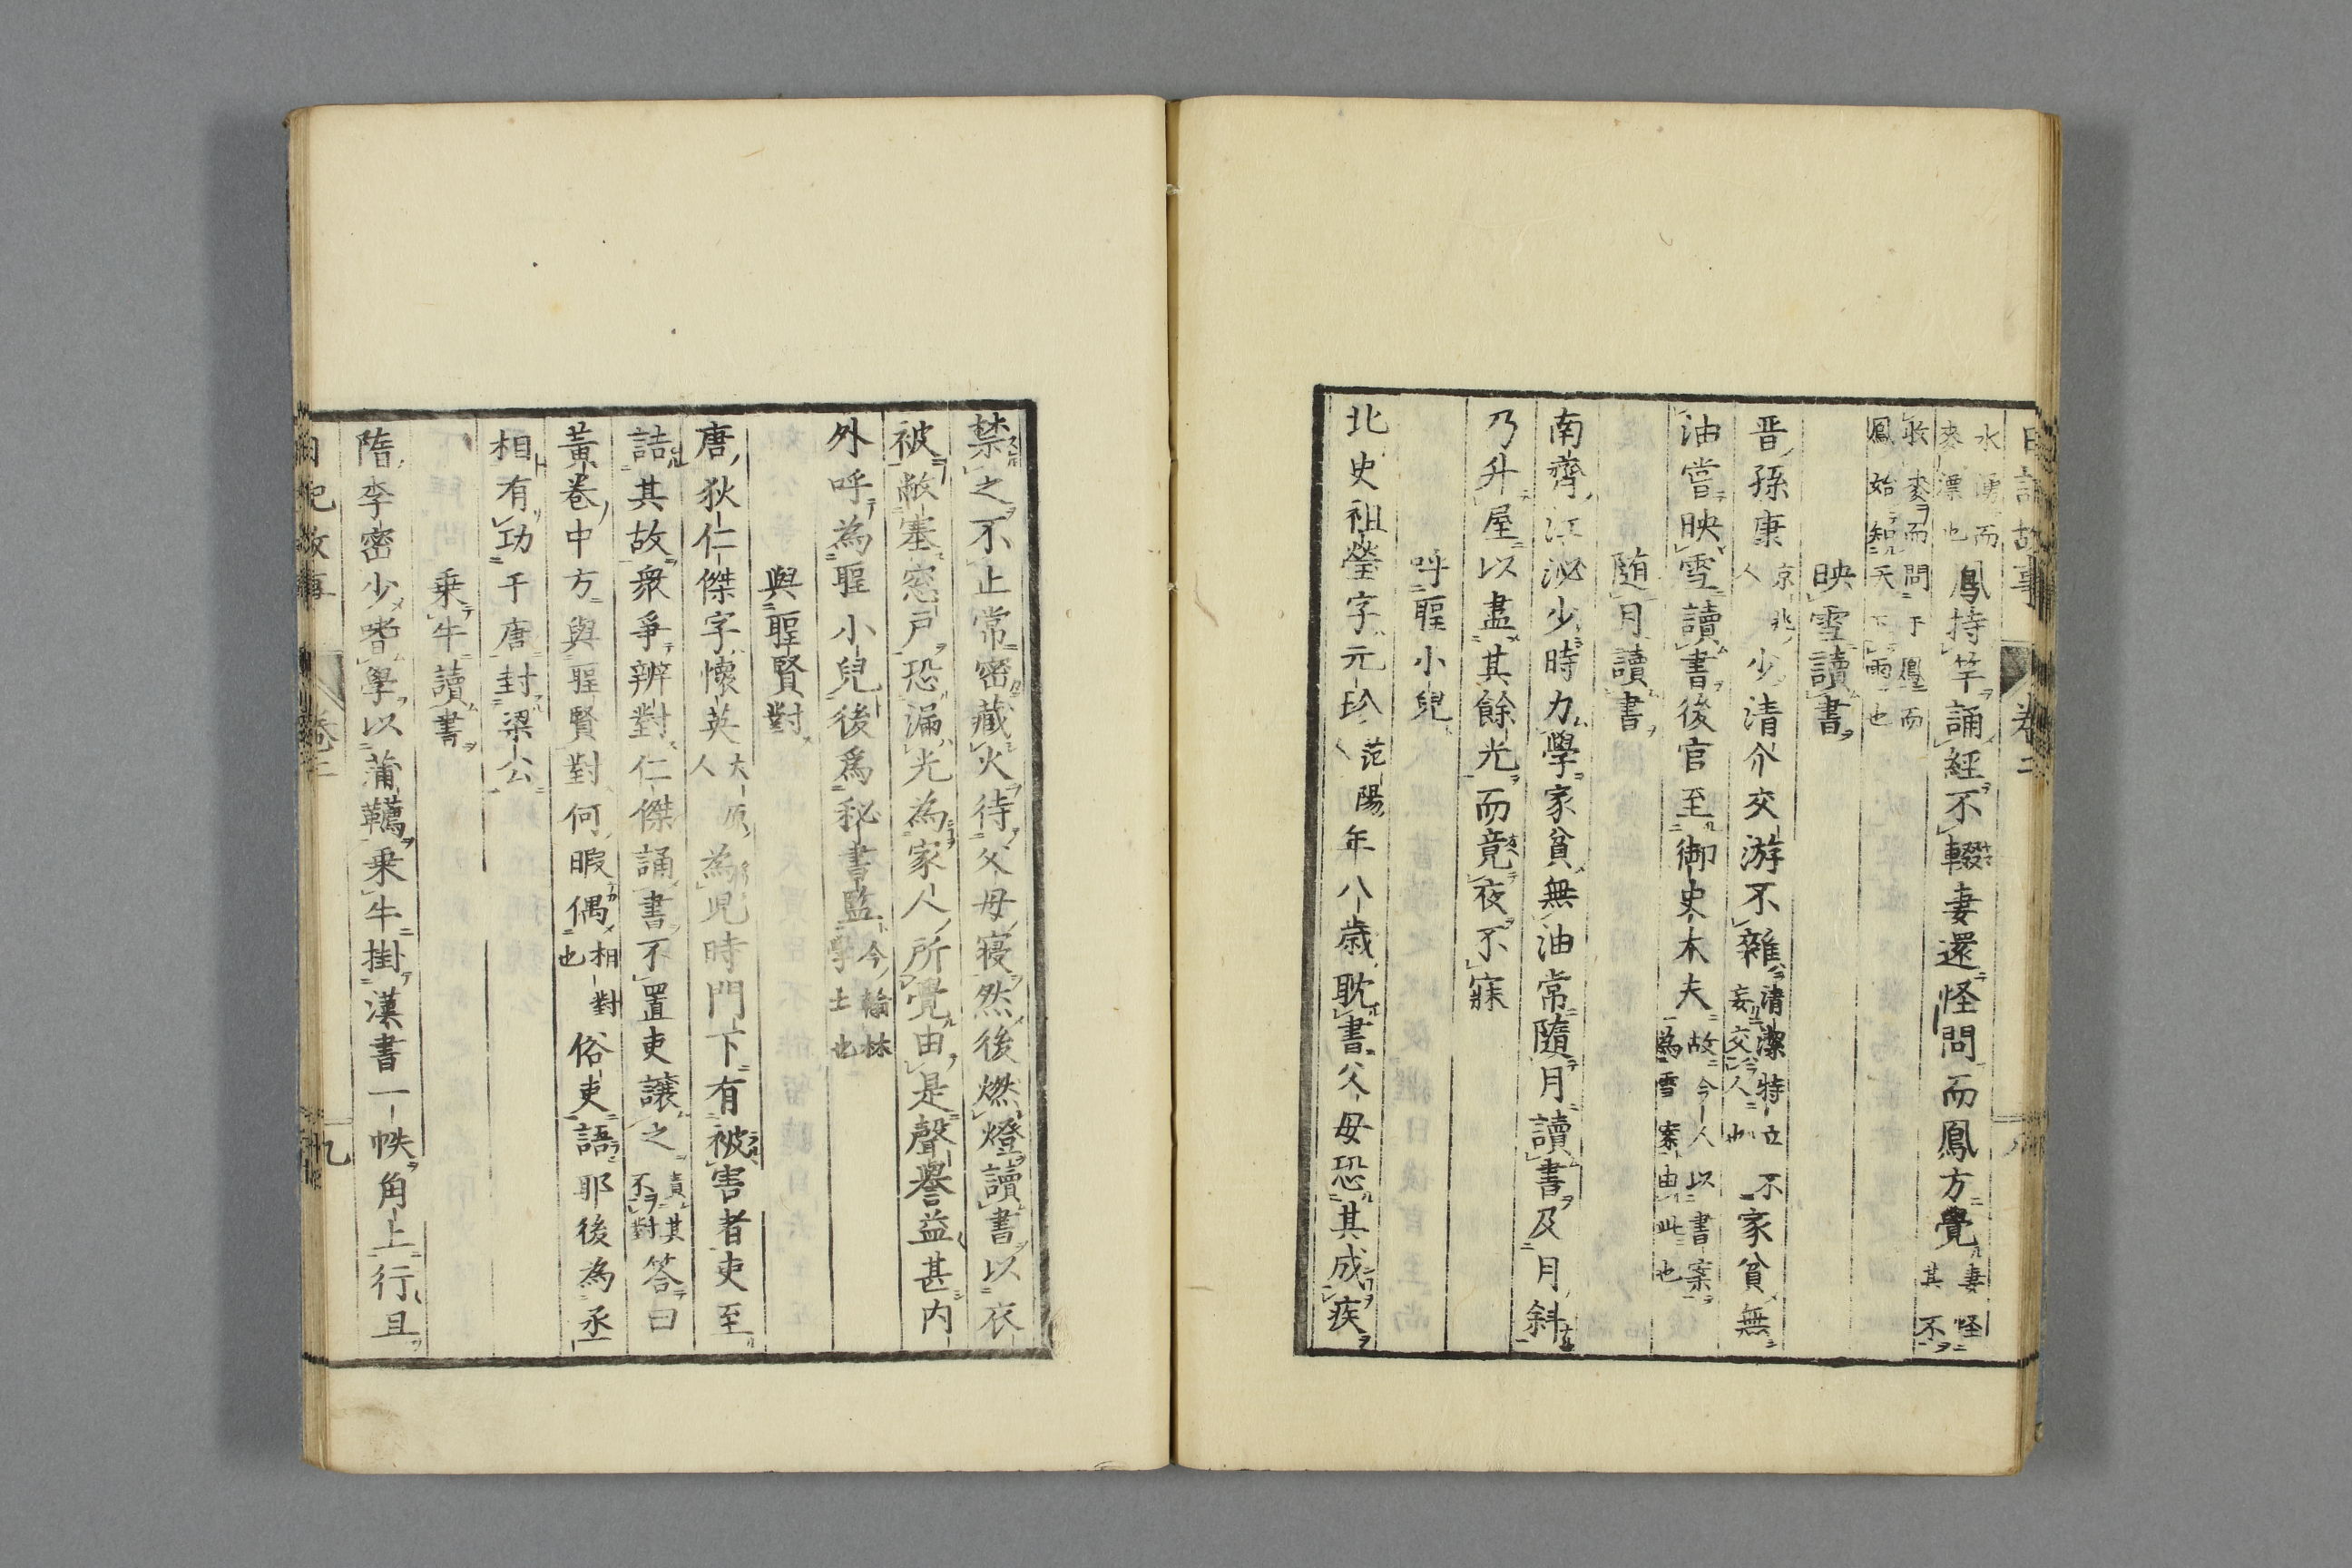 日記故事 卷二 八
水湧而麥漂也 鳳持竿誦經不輟妻還怪問而鳳方覺 妻怪其不
收麥而問于鳳而鳳始知天下雨也
映雪讀書
晋孫康 京兆人 少清介交游不雜 清潔特立不妄交人也 家貧無
油嘗映雪讀書後官至御史大夫 故今人以書案為雪案由此也
随月讀書
南齊江泌少時力學家貧無油常隨月讀書及月斜
乃升屋以盡其餘光而竟夜不寐
呼聖小兒
北史祖瑩字元珍 范陽人 年八歲耽書父母恐其成疾
禁之不止常密藏火待父母寝然後燃燈讀書以衣
被蔽塞窓戸恐漏光為家人所覺由是聲譽益甚内
外呼為聖小兒後爲秘書監 今翰林學士也
與聖賢對
唐狄仁傑字懐英 大原人 為児時門下有被害者吏至
詰其故衆爭辨對仁傑誦書不置吏讓之 責其不對 答曰
黃卷中方與聖賢對何暇偶 相對也 俗吏語耶後為丞
相有功于唐封梁公
乗牛讀書
隋李密少嗜學以蒲韉乗牛掛漢書一帙角上行且
日記故事 卷二 九